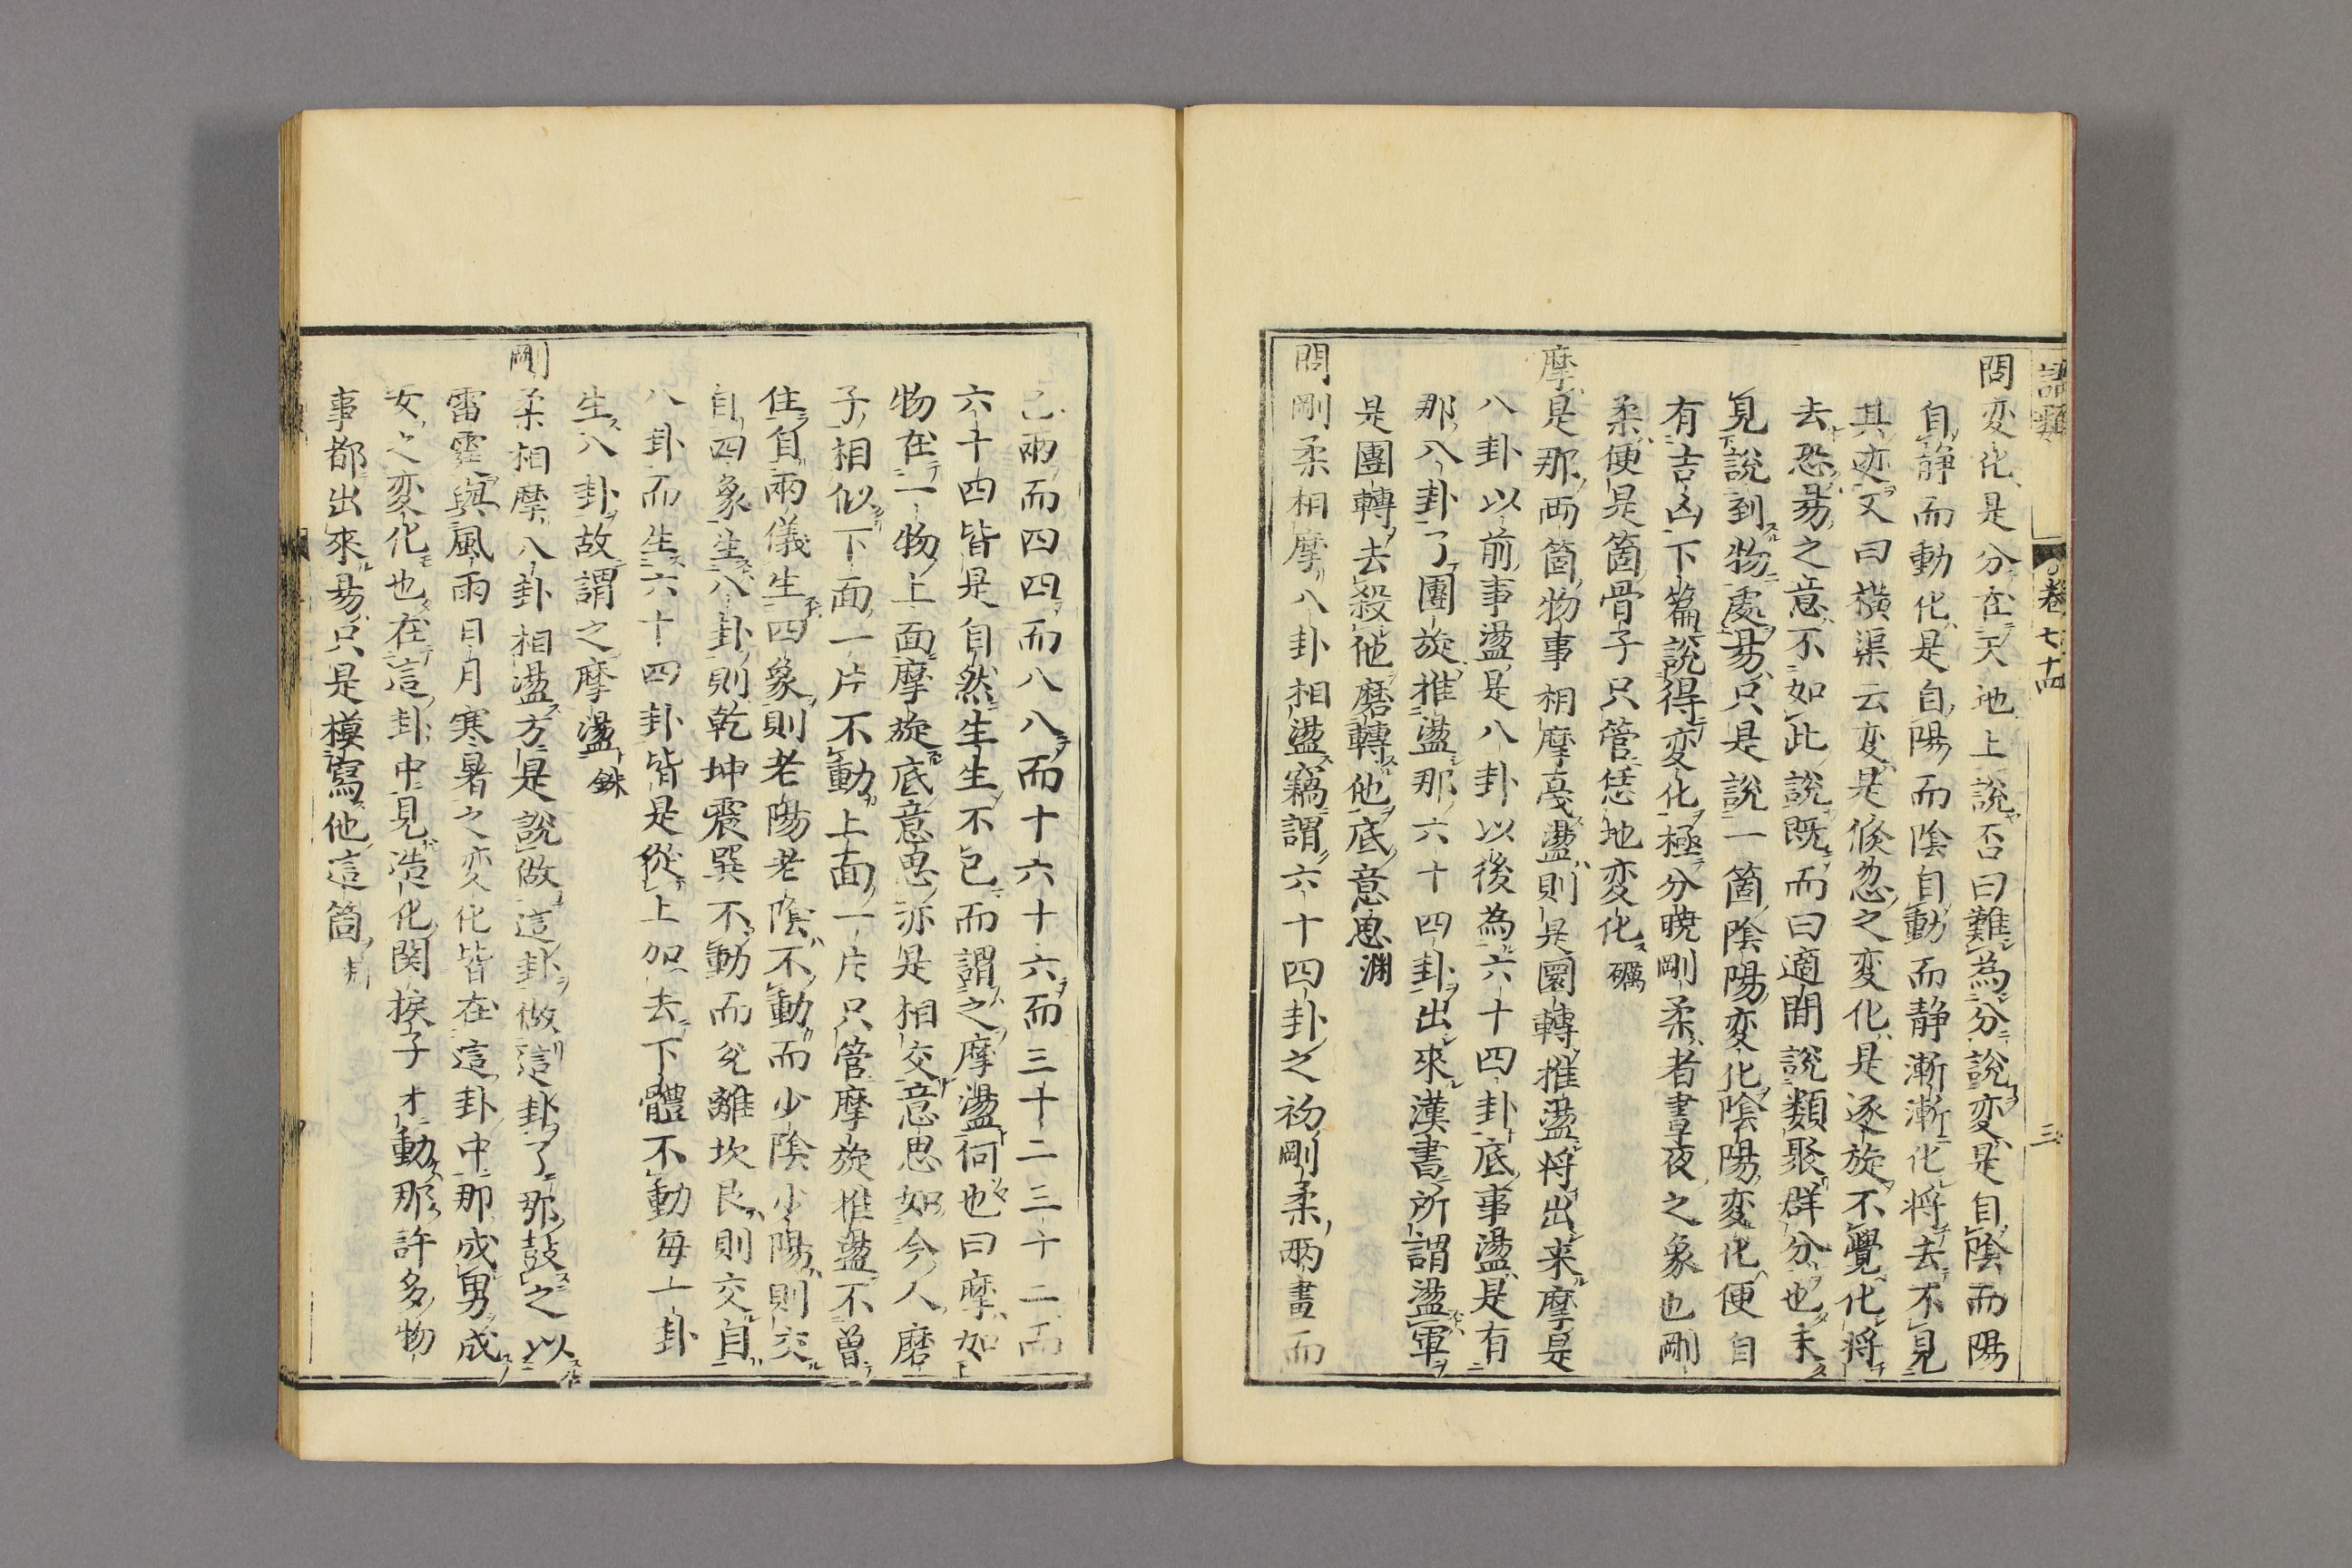 語類 卷七十四 三
問変化是分在天地上說否曰難為分說変是自陰而陽
自静而動化是自陽而陰自動而静漸漸化将去不見
其迹又曰横渠云変是倐忽之変化是逐旋不覺化将
去恐易之意不如此說既而曰適間說類聚群分也未
見說到物處易只是說一箇陰陽変化陰陽変化便自
有吉凶下篇說得変化極分曉剛柔者晝夜之象也剛
柔便是箇骨子只管恁地変化礪
摩是那両箇物事相摩戞盪則是圜轉推盪将出来摩是
八卦以前事盪是八卦以後為六十四卦底事盪是有
那八卦了團旋推盪那六十四卦出來漢書所謂盪軍
是團轉去殺他磨轉他底意思渊
問剛柔相摩八卦相盪竊謂六十四卦之初剛柔両畫而
已両而四四而八八而十六十六而三十二三十二而
六十四皆是自然生生不已而謂之摩盪何也曰摩如
物在一物上面摩旋底意思亦是相交意思如今人磨
子相似下面一片不動上面一片只管摩旋推盪不曾
住自両儀生四象則老陽老陰不動而少陰少陽則交
自四象生八卦則乾坤震巽不動而兊離坎艮則交自
八卦而生六十四卦皆是從上加去下體不動毎一卦
生八卦故謂之摩盪銖
剛柔相摩八卦相盪方是說做這卦做這卦了那鼓之以
雷霆與風雨日月寒暑之変化皆在這卦中那成男成
女之変化也在這卦中見造化関捩子才動那許多物
事都出來易只是模寫他這箇